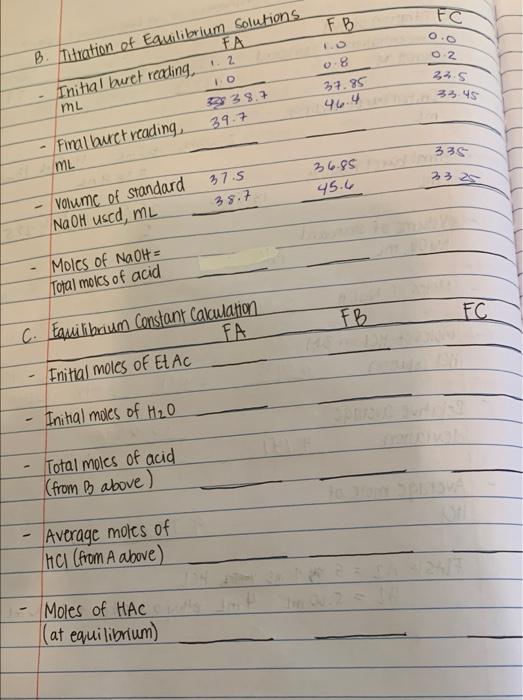 B. Titration of Equilibrium Solutions
FA FB FC
- Initial buret reading, mL 1.2 1.0 0.0
1.0 0.8 0.2
- Final buret reading, mL 38.7 37.85 33.5
39.7 46.4 33.45
- Volume of standard NaOH used, mL 37.5 36.85 335
38.7 45.6 33 25
- Moles of NaOH =
Total moles of acid
C. Equilibrium Constant Calculation
FA FB FC
- Initial moles of EtAc
- Initial moles of H2O
- Total moles of acid
(from B above)
- Average moles of
HCl (from A above)
- Moles of HAc
(at equilibrium)